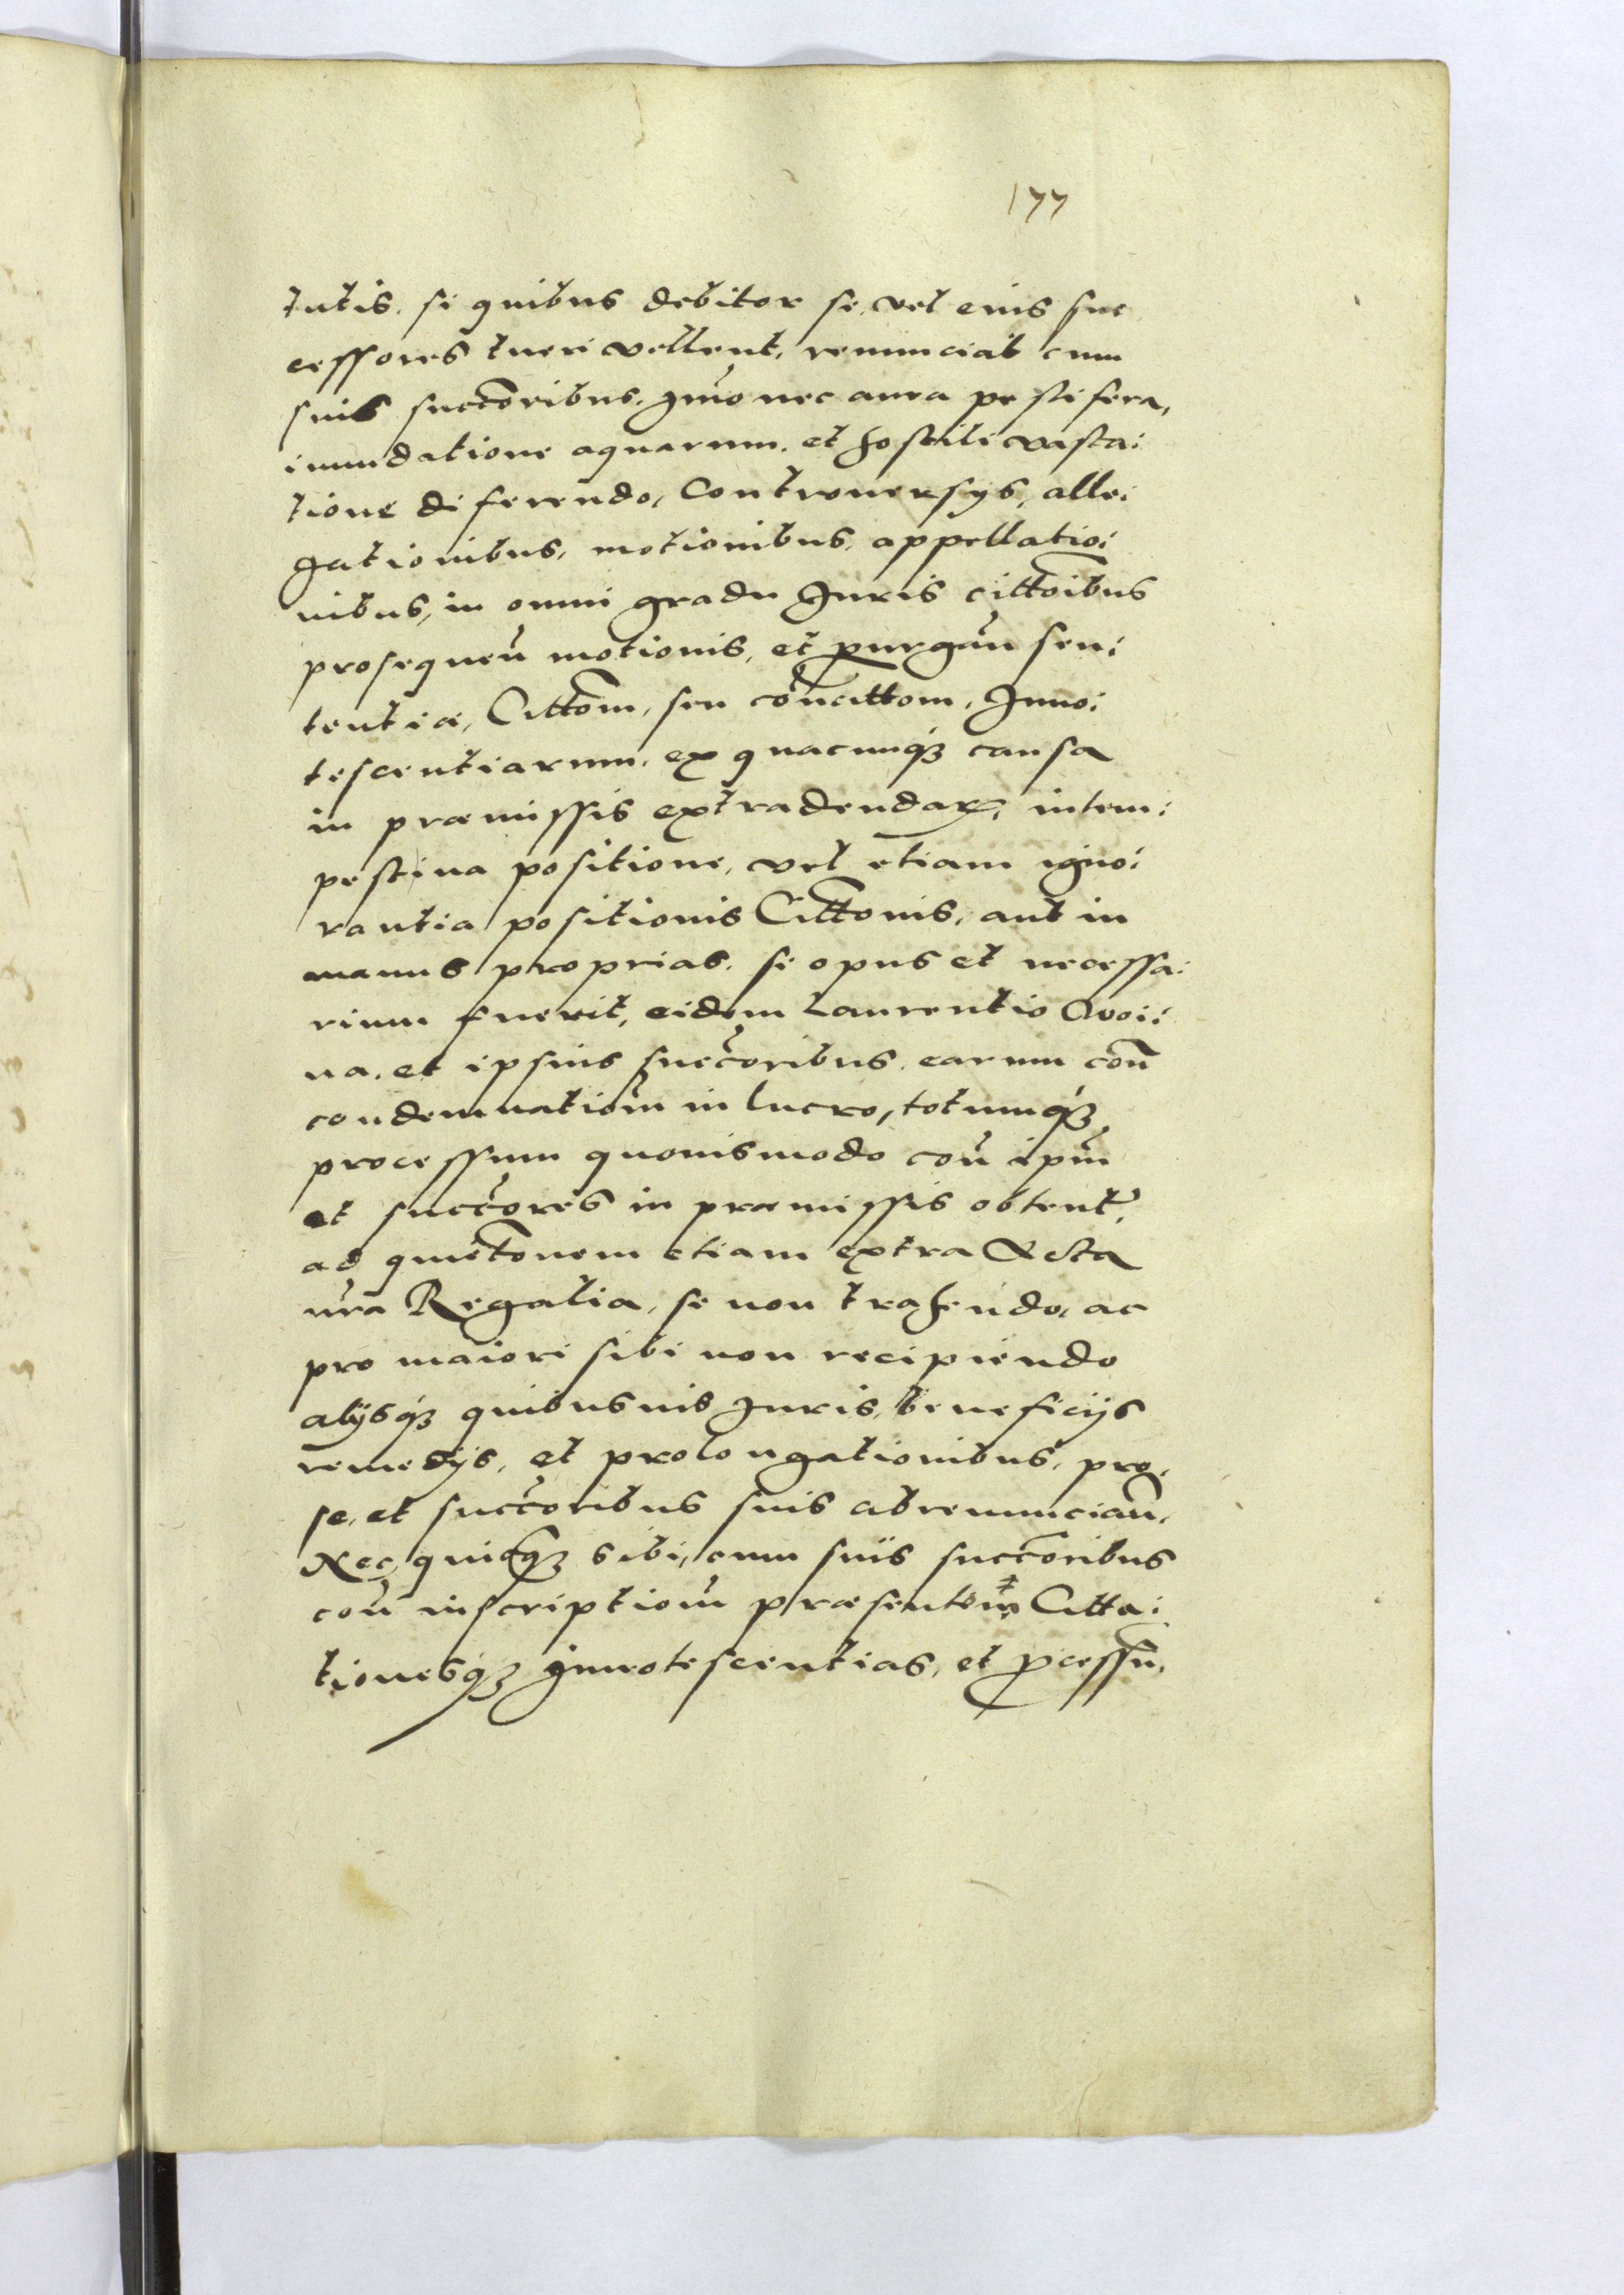 177
tutis. si quibus debitor se, vel eius suc
cessores tueri vellent, renunciat cum
suis succ̃oribus. Im̃o nec aura pestifera,
inundatione aquarum, et hostili vasta:
tione diferendo, Controuersÿs, alle:
gationibus, motionibus, appellatio:
nibus, in omni gradu Iuris cittõibus
prosequeñ motionis, et purgañ sen:
tentia, Cittõm, seu coñcittom, Inno:
tescentiarum, ex quacunq3 causa
in præmissis extradendar, intem:
pestiua positione, vel etiam igno:
rantia positionis Cittõnis, aut in
manus proprias. si opus et necessa:
rium fuerit, eidem Laurentio
na. et ipsius succ̃oribus. earum coñ
condemnatiom̃ in lucro, totumq3
processum quouismodo coñ ipm̃
et succ̃ores in præmissis obtent,
ad quiet̃onem etiam extra Acta
nr̃a Regalia, se non trahendo, ac
pro maiori sibi non recipiendo
alÿsq3 quibusuis Iuris, beneficijs
remedÿs, et prolongationibus, pro
se, et succ̃oribus suis abrenunciañ.
Nec quicq3 sibi, cum suis succ̃oribus
coñ inscriptiom̃ præsentem Citta:
tionesq3 Innotescentias, et pcessũ,